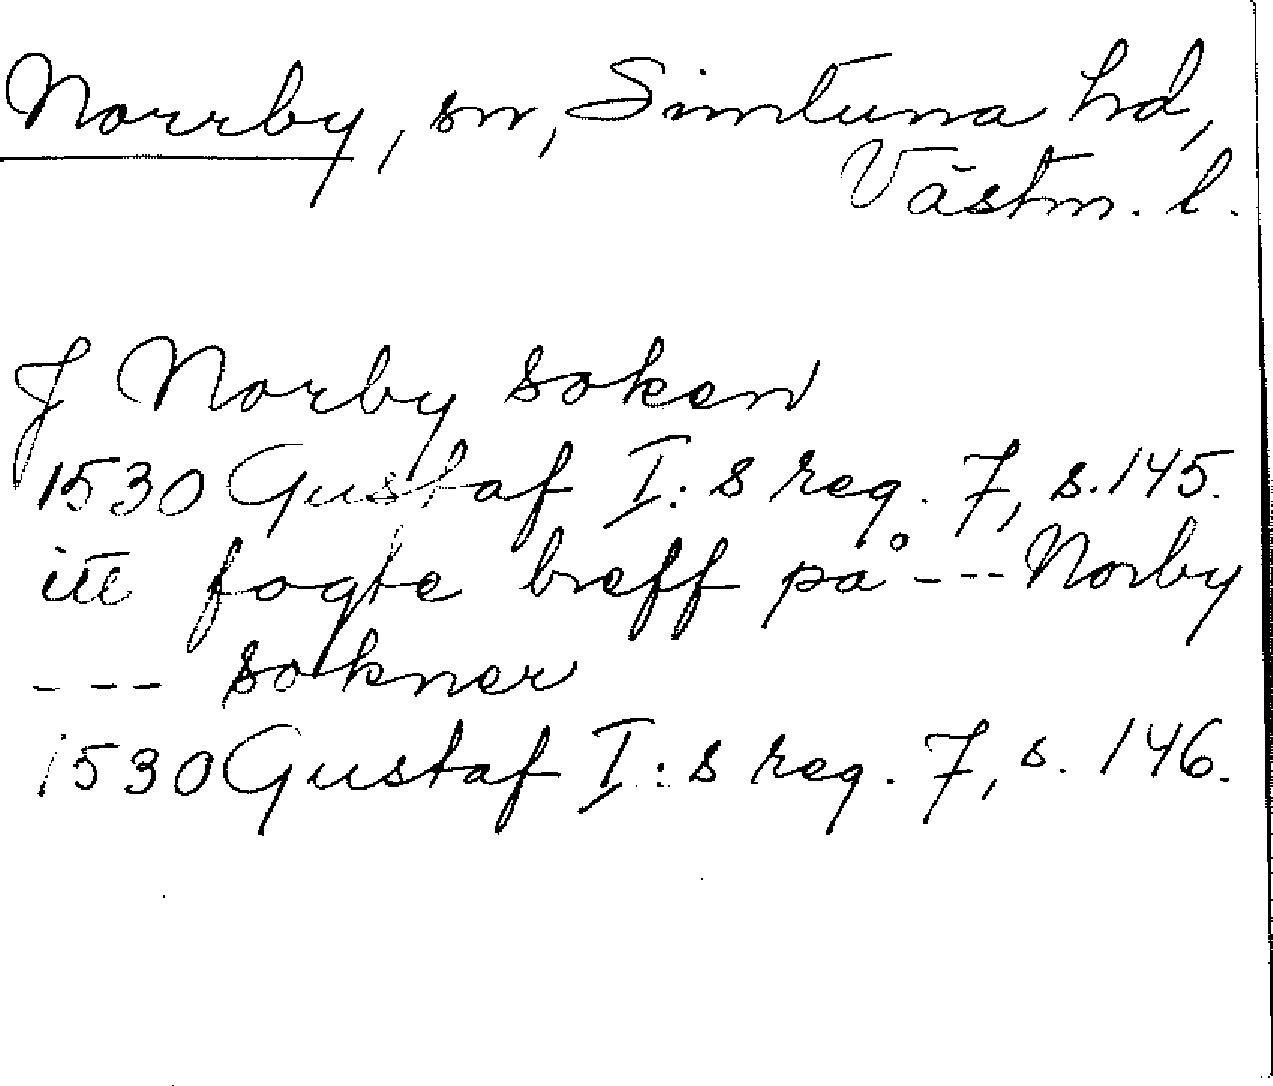 Norrby, sn, Simtuna hd,
Västm. l.
J Norby soken
1530 Gustaf I:s reg. 7, s. 145.
itt fogte breff på --- Norby
--- sokner
1530 Gustaf I:s reg. 7, s. 146.